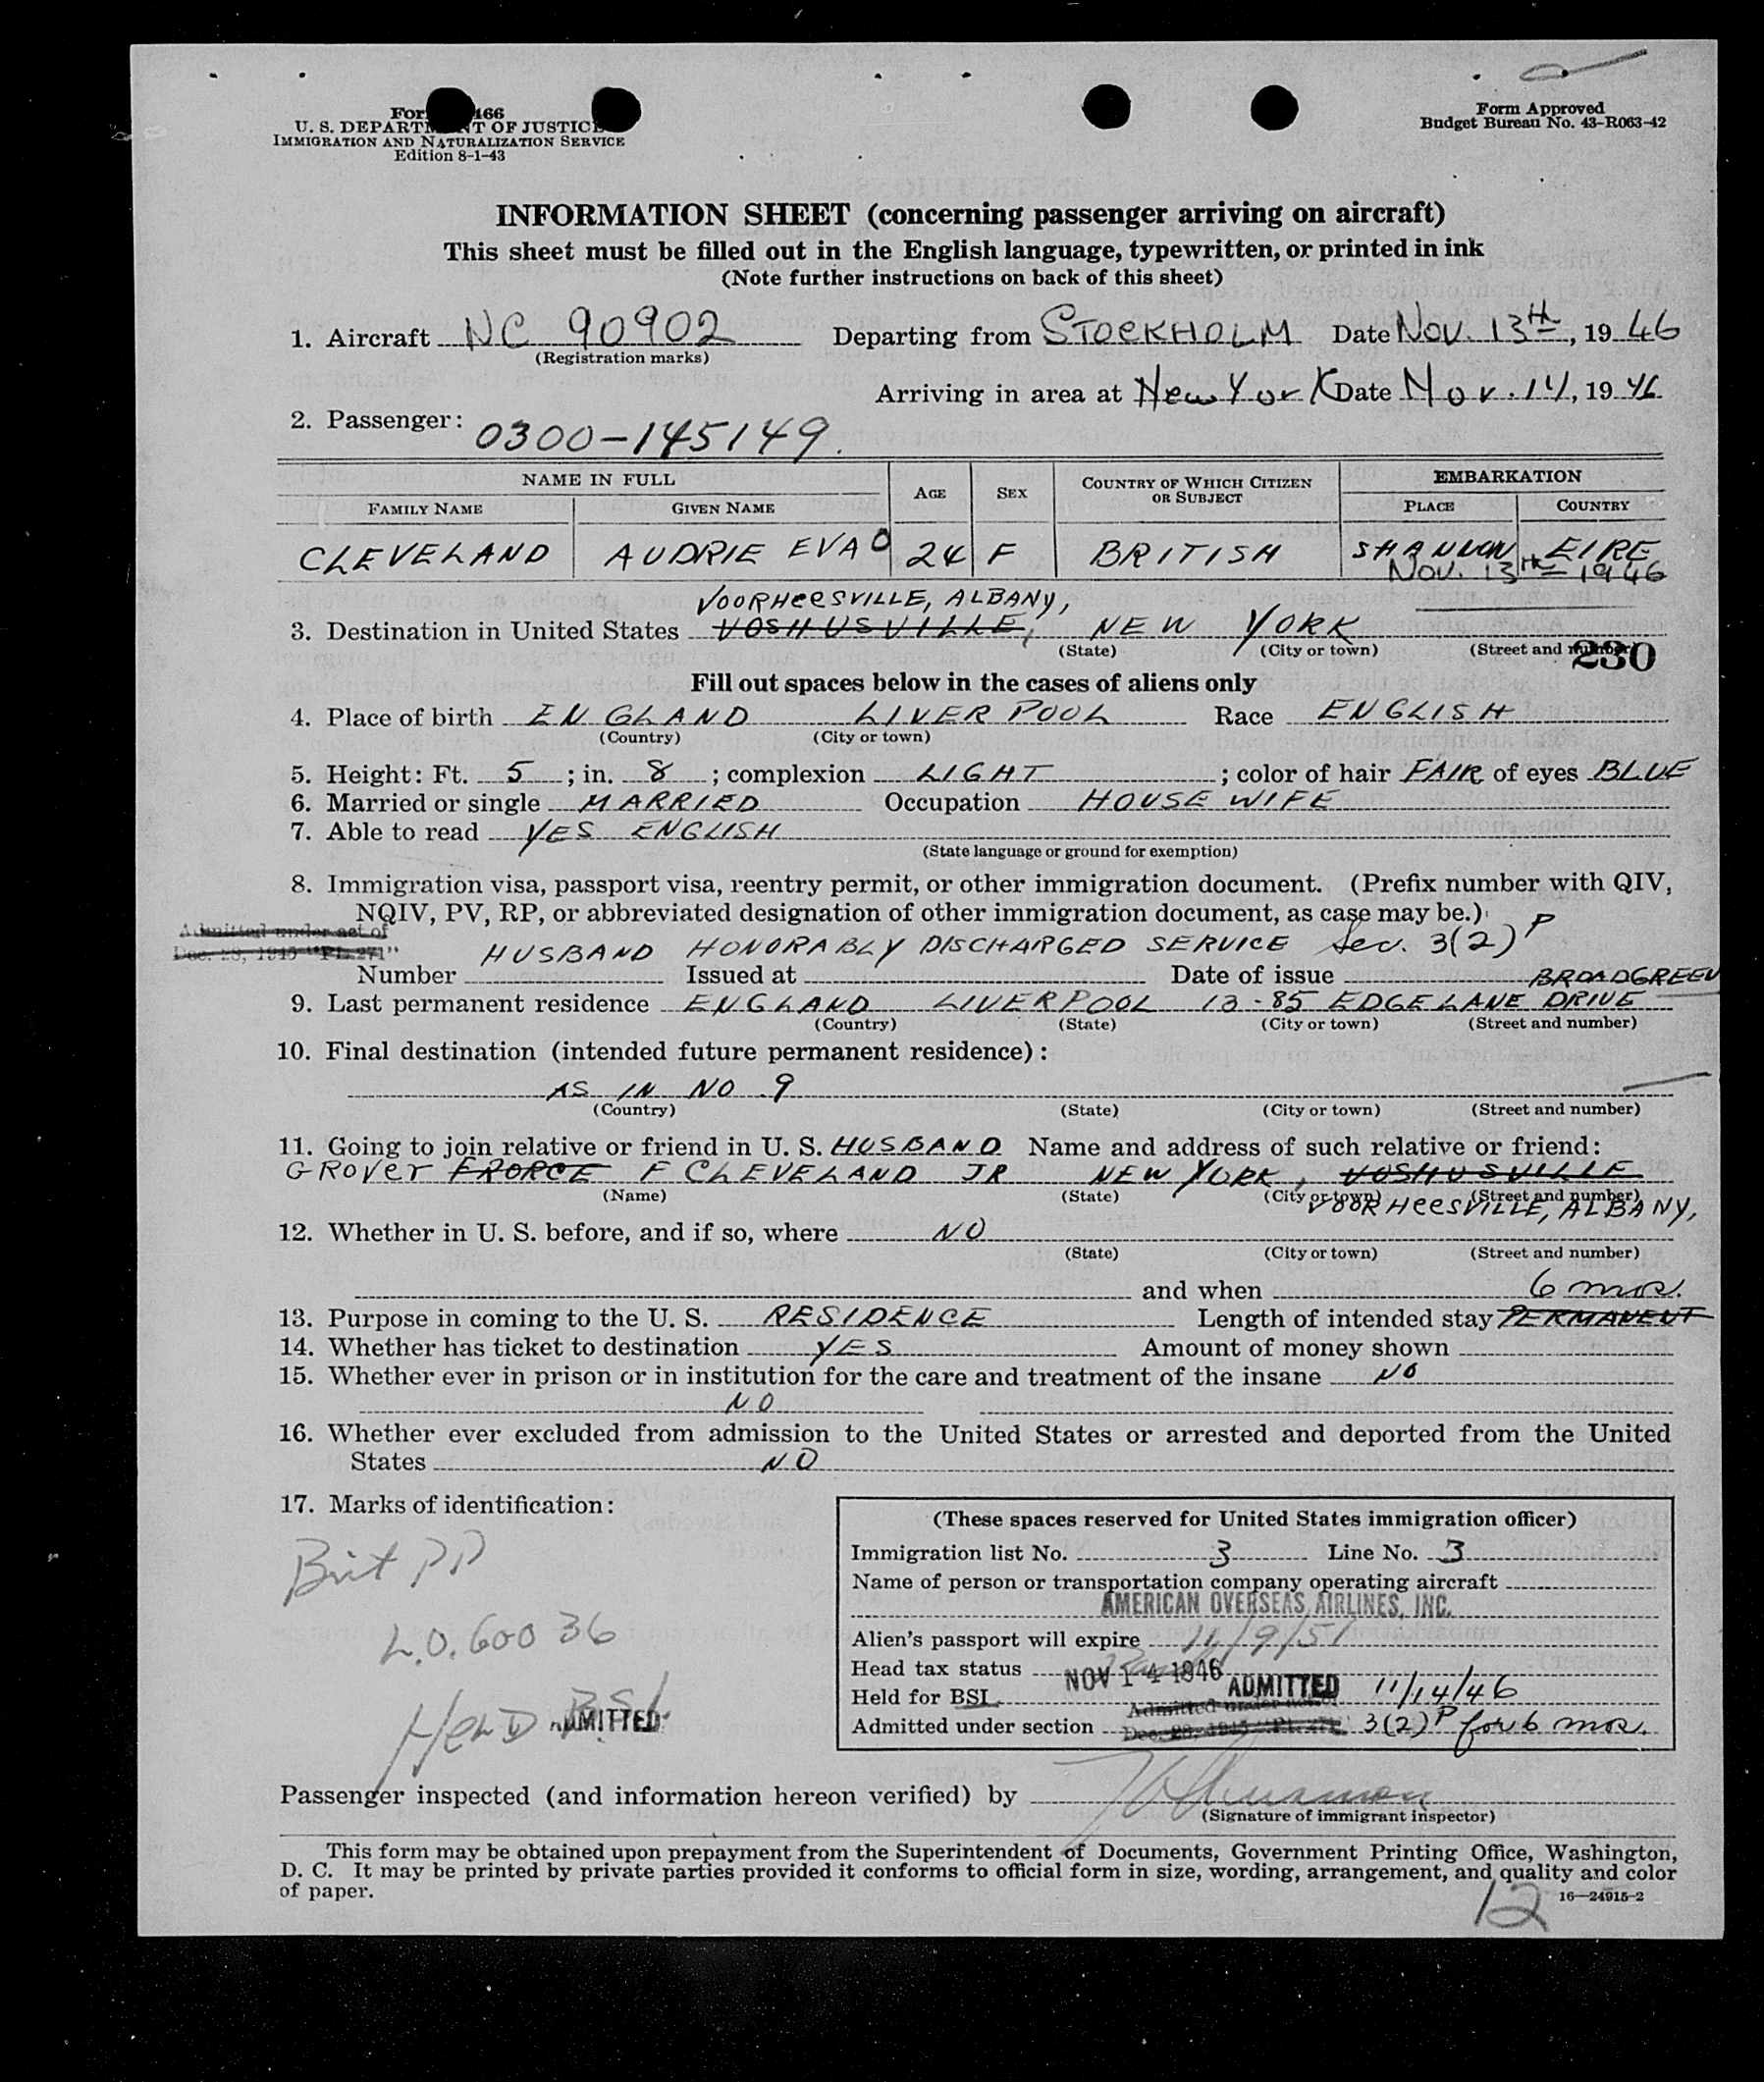 For 466
U. S. DEPARTMENT OF JUSTICE
IMMIGRATION AND NATURALIZATION SERVICE
Edition 8-1-43
Form Approved
Budget Bureau No. 43-R063-42
INFORMATION SHEET (concerning passenger arriving on aircraft)
This sheet must be filled out in the English language, typewritten, or printed in ink
(Note further instructions on back of this sheet)
1. Aircraft NC 90902 Departing from STOCKHOLM Date NOV. 13th, 19 46
(Registration marks)
Arriving in area at New York Date Nov. 14, 19 46
2. Passenger: 0300-145149.
NAME IN FULL AGE SEX COUNTRY OF WHICH CITIZEN OR SUBJECT EMBARKATION
FAMILY NAME GIVEN NAME PLACE COUNTRY
CLEVELAND AUDRIE EVA 24 F BRITISH SHANNON EIRE
NOV. 13th 1946
VOORHEESVILLE, ALBANY,
3. Destination in United States VOSHUSVILLE, NEW YORK
(State) (City or town) (Street and number)
230
Fill out spaces below in the cases of aliens only
4. Place of birth ENGLAND LIVERPOOL Race ENGLISH
(Country) (City or town)
5. Height: Ft. 5 ; in. 8 ; complexion LIGHT ; color of hair FAIR of eyes BLUE
6. Married or single MARRIED Occupation HOUSE WIFE
7. Able to read YES ENGLISH
(State language or ground for exemption)
8. Immigration visa, passport visa, reentry permit, or other immigration document. (Prefix number with QIV,
NQIV, PV, RP, or abbreviated designation of other immigration document, as case may be.)
Admitted under act of
Dec. 28, 1945 "PL 271"
HUSBAND HONORABLY DISCHARGED SERVICE Sec. 3(2) P
Number Issued at Date of issue
BROADGREEN
9. Last permanent residence ENGLAND LIVERPOOL 13-85 EDGE LANE DRIVE
(Country) (State) (City or town) (Street and number)
10. Final destination (intended future permanent residence):
AS IN NO 9
(Country) (State) (City or town) (Street and number)
11. Going to join relative or friend in U. S. HUSBAND Name and address of such relative or friend:
GROVER FRORCE F CLEVELAND JR NEW YORK, VOSHUSVILLE
(Name) (State) (City or town) (Street and number)
VOORHEESVILLE, ALBANY,
12. Whether in U. S. before, and if so, where NO
(State) (City or town) (Street and number)
and when
6 mos.
13. Purpose in coming to the U. S. RESIDENCE Length of intended stay PERMANENT
14. Whether has ticket to destination YES Amount of money shown
15. Whether ever in prison or in institution for the care and treatment of the insane NO
NO
16. Whether ever excluded from admission to the United States or arrested and deported from the United
States NO
17. Marks of identification:
Brit PP
L.O. 60036
HELD BSI
ADMITTED
(These spaces reserved for United States immigration officer)
Immigration list No. 3 Line No. 3
Name of person or transportation company operating aircraft
AMERICAN OVERSEAS AIRLINES, INC.
Alien's passport will expire 11/9/51
Head tax status
NOV 14 1946
Held for BSI ADMITTED 11/14/46
Admitted under act of
Admitted under section Dec. 28, 1945 "PL 271" 3(2) P for 6 mos.
Passenger inspected (and information hereon verified) by
(Signature of immigrant inspector)
This form may be obtained upon prepayment from the Superintendent of Documents, Government Printing Office, Washington,
D. C. It may be printed by private parties provided it conforms to official form in size, wording, arrangement, and quality and color
of paper.
16—24915-2
12